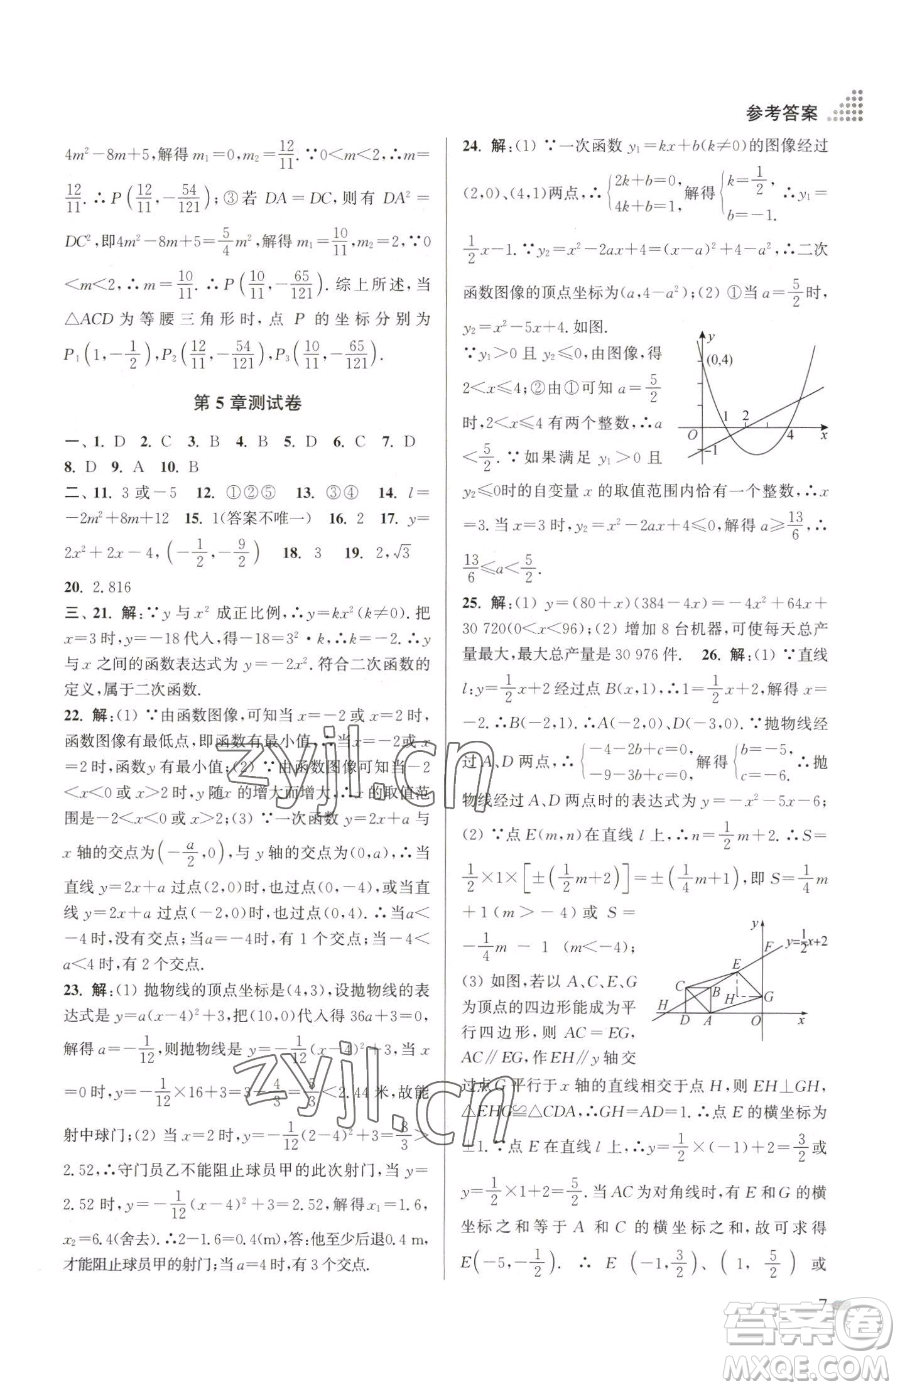 参考答案
4m²-8m+5,解得 m₁=0,m₂=12/11.∵0<m<2,∴m=
12/11.∴P(12/11,-54/121);③若 DA=DC,则有 DA²=
DC²,即4m²-8m+5=5/4m²,解得 m₁=10/11,m₂=2.∵0
<m<2,∴m=10/11.∴P(10/11,-65/121).综上所述,当
△ACD 为等腰三角形时,点 P 的坐标分别为
P₁(1,-1/2),P₂(12/11,-54/121),P₃(10/11,-65/121).
第 5 章测试卷
一、1. D 2. C 3. B 4. B 5. D 6. C 7. D
8. D 9. A 10. B
二、11. 3 或-5 12. ①②⑤ 13. ③④ 14. l=
-2m²+8m+12 15. 1(答案不唯一) 16. 2 17. y=
2x²+2x-4,(-1/2,-9/2) 18. 3 19. 2,√3
20. 2.816
三、21. 解:∵y 与 x² 成正比例,∴y=kx²(k≠0).把
x=3 时,y=-18代入,得-18=3²·k,∴k=-2,∴y
与 x 之间的函数表达式为 y=-2x².符合二次函数的
定义,属于二次函数.
22. 解:(1) ∵由函数图像,可知当 x=-2或 x=2时,
函数图像有最低点,即函数有最小值,∴当x=-2或x=
2时,函数y有最小值;(2) ∵由函数图像可知当-2
<x<0或x>2时,y随x的增大而增大,∴x的取值范
围是-2<x<0或x>2;(3) ∵一次函数 y=2x+a与
x 轴的交点为(-a/2,0),∴当a<0时,分情况讨论:∵
一次函数 y=2x+a 过点(2,0)时,过点(0,-4),∴当直
线 y=2x+a 过点(-2,0)时,过点(0,4),∴当a<
-4时,没有交点;当a=-4时,有1个交点;当-4<a
<0时,有 2 个交点.
23. 解:(1) 抛物线的顶点坐标是(4,3),设抛物线的表
达式是 y=a(x-4)²+3,把(10,0)代入得 36a+3=0,
解得 a=-1/12,则抛物线是 y=-1/12(x-4)²+3,当 x
=0时,y=-1/12×16+3=3-4/3=5/3<2.44 米,故能
射中球门;(2) 当 x=2时,y=-1/12(2-4)²+3=8/3>
2.52,∴守门员乙不能阻止球员甲的此次射门,当 y=
2.52 时,y=-1/12(x-4)²+3=2.52,解得 x₁=1.6,
x₂=6.4(舍去).∴2-1.6=0.4(m),答:他至少后退0.4 m,
才能阻止球员甲的射门;当 a=4时,有 3 个交点.
24. 解:(1) ∵一次函数 y₁=kx+b(k≠0)的图像经过
(2,0)、(4,1)两点,∴{2k+b=0, 4k+b=1, 解得{k=1/2, b=-1. ∴y₁=
1/2x-1.∵y₂=x²-2ax+4=(x-a)²+4-a²,∴二次
函数图像的顶点坐标为(a,4-a²);(2) ①当 a=5/2时,
y₂=x²-5x+4.如图.
∵y₁>0且 y₂≤0,由图像,得
2<x≤4;②由①可知 a=5/2时,
2<x≤4有两个整数,∴a
<5/2.∵如果满足 y₁>0且
y₂≤0时的自变量 x 的取值范围内恰有一个整数,∴x
=3.当 x=3时,y₂=x²-2ax+4≤0,解得 a≥13/6,∴
13/6≤a<5/2.
y
(0,4)
1 2
O 4 x
-1
25. 解:(1) y=(80+x)(384-4x)=-4x²+64x+
30 720(0<x<96);(2) 增加 8 台机器,可使每天总产
量最大,最大总产量是 30 976 件. 26. 解:(1) ∵直线
l:y=1/2x+2经过点 B(x,1),∴1=1/2x+2,解得 x=
-2.∴B(-2,1).∴A(-2,0),D(-3,0).∵抛物线经
过A、D两点,∴{-4-2b+c=0, -9-3b+c=0, 解得{b=-5, c=-6. ∴抛
物线经过 A、D 两点时的表达式为 y=-x²-5x-6;
(2) ∵点 E(m,n)在直线 l 上,∴n=1/2m+2,∴S=
1/2×1×[±(1/2m+2)]=±(1/4m+1),即 S=1/4m
+1(m>-4)或 S=
-1/4m-1(m<-4);
(3) 如图,若以 A、C、E、G
为顶点的四边形能成为平
行四边形,则 AC=EG,
AC∥EG,作EH∥y轴交
y F y=1/2x+2
E
C B H G
H D A O x
过点G平行于x轴的直线相交于点 H,则 EH⊥GH,
△EHG≌△CDA,∴GH=AD=1.∴E 的横坐标为
±1.∵点 E 在直线 l 上,∴y=1/2×(-1)+2=3/2或
y=1/2×1+2=5/2.当 AC 为对角线时,有 E、G 的横
坐标之和等于 A 和 C 的横坐标之和,故可求得
E(-5,-1/2).∴E(-1,3/2)、(1,5/2)或
7
zyjl.cn
zyjl.cn
答案圈
MXQE.COM